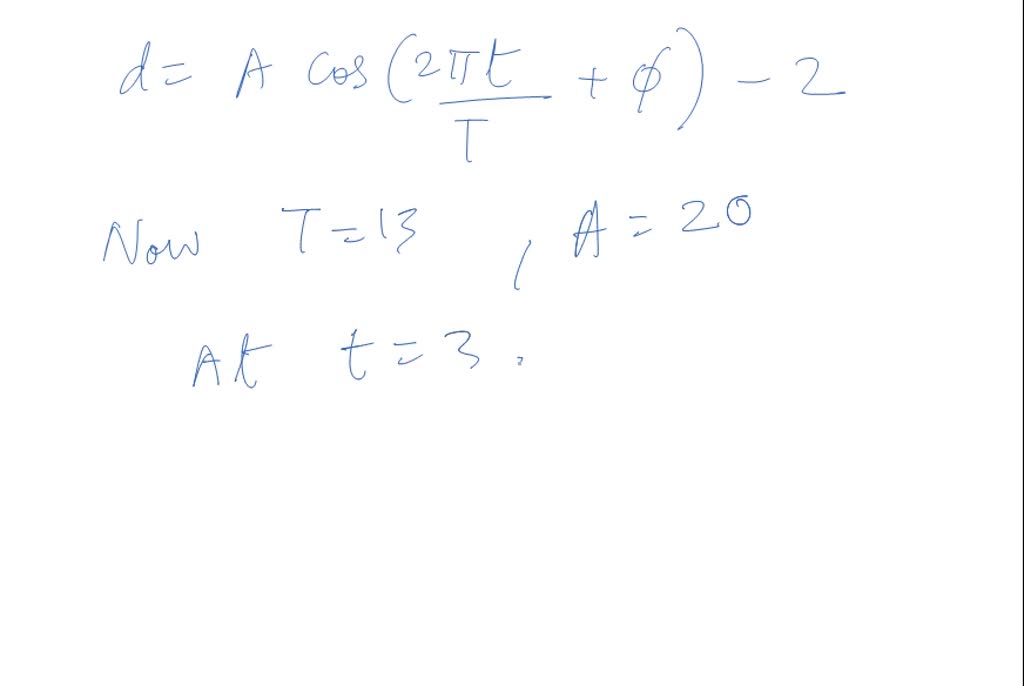 d = A cos(2πt/T + φ) - 2
Now T = 13 , A = 20
At t = 3 .